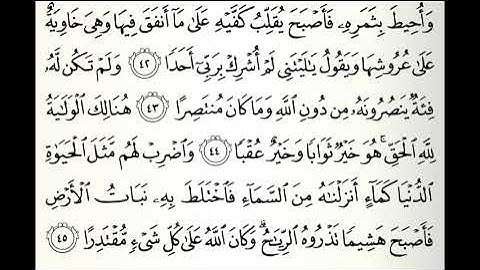 وَأُحِيطَ بِثَمَرِهِۦ فَأَصۡبَحَ يُقَلِّبُ كَفَّيۡهِ عَلَىٰ مَآ أَنفَقَ فِيهَا وَهِيَ خَاوِيَةٌ
عَلَىٰ عُرُوشِهَا وَيَقُولُ يَٰلَيۡتَنِي لَمۡ أُشۡرِكۡ بِرَبِّيٓ أَحَدٗا ٤٢ وَلَمۡ تَكُن لَّهُۥ
فِئَةٞ يَنصُرُونَهُۥ مِن دُونِ ٱللَّهِ وَمَا كَانَ مُنتَصِرًا ٤٣ هُنَالِكَ ٱلۡوَلَٰيَةُ
لِلَّهِ ٱلۡحَقِّۚ هُوَ خَيۡرٞ ثَوَابٗا وَخَيۡرٌ عُقۡبٗا ٤٤ وَٱضۡرِبۡ لَهُم مَّثَلَ ٱلۡحَيَوٰةِ
ٱلدُّنۡيَا كَمَآءٍ أَنزَلۡنَٰهُ مِنَ ٱلسَّمَآءِ فَٱخۡتَلَطَ بِهِۦ نَبَاتُ ٱلۡأَرۡضِ
فَأَصۡبَحَ هَشِيمٗا تَذۡرُوهُ ٱلرِّيَٰحُۗ وَكَانَ ٱللَّهُ عَلَىٰ كُلِّ شَيۡءٖ مُّقۡتَدِرًا ٤٥